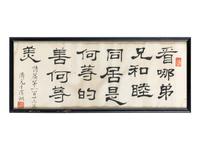 看哪弟
兄和睦
同居是
何等的
善何等
美